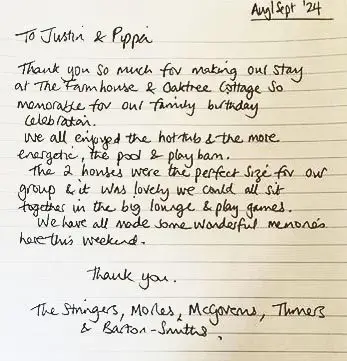 Aug/Sept '24
To Justin & Pippa
Thank you so much for making our stay
at The Farmhouse & Oaktree Cottage so
memorable for our family birthday
celebration.
We all enjoyed the hot tub & the more
energetic, the pool & play barn.
The 2 houses were the perfect size for our
group & it was lovely we could all sit
together in the big lounge & play games.
We have all made some wonderful memories
here this weekend.
Thank you.
The Stringers, Morles, McGoverns, Turners
& Barton-Smiths.